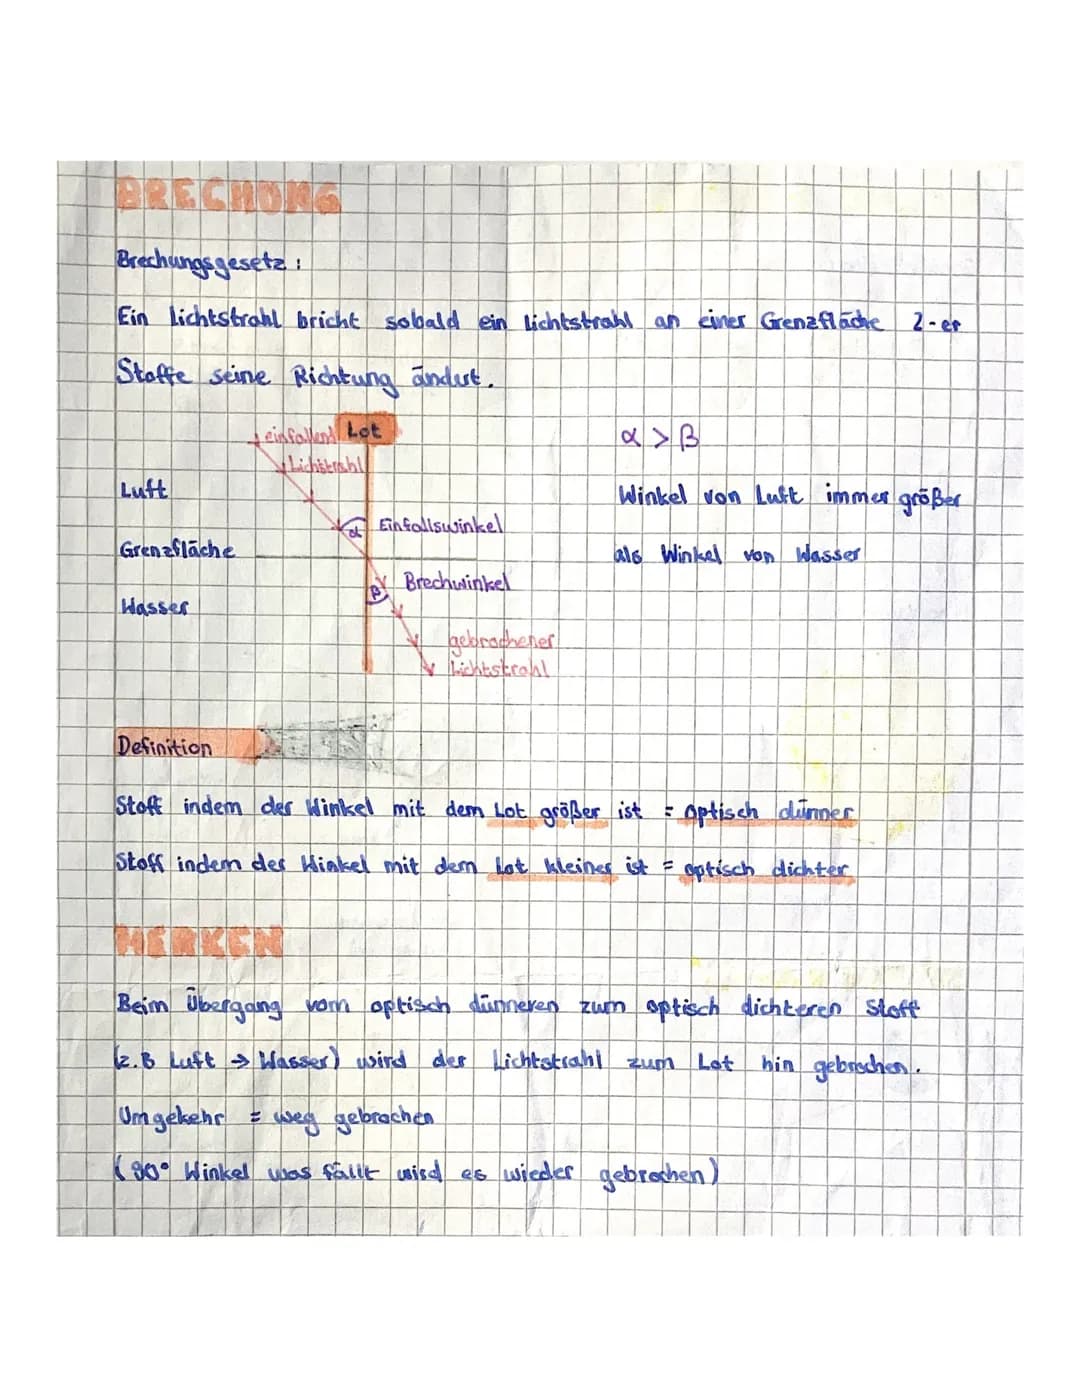 BRECHUNG
Brechungsgesetz :
Ein Lichtstrahl bricht sobald ein Lichtstrahl an einer Grenzfläche 2-er
Stoffe seine Richtung ändert.
einfallend Lot
Lichstrahl
α > β
Luft
Winkel von Luft immer größer
α Einfallswinkel
Grenzfläche
als Winkel von Wasser
β Brechwinkel
Wasser
gebrochener
Lichtstrahl
Definition
Stoff indem der Winkel mit dem Lot größer ist = optisch dünner
Stoff indem der Winkel mit dem Lot kleiner ist = optisch dichter
MERKEN
Beim Übergang vom optisch dünneren zum optisch dichteren Stoff
(z.B Luft → Wasser) wird der Lichtstrahl zum Lot hin gebrochen.
Umgekehr = weg gebrochen
(90° Winkel was fällt wird es wieder gebrochen)